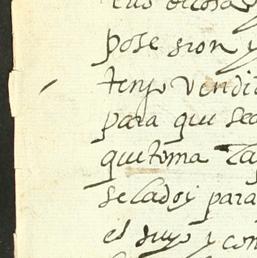 pose sion y
tenjo vendi
para que sea
que toma La
se la doy para
el suyo y con